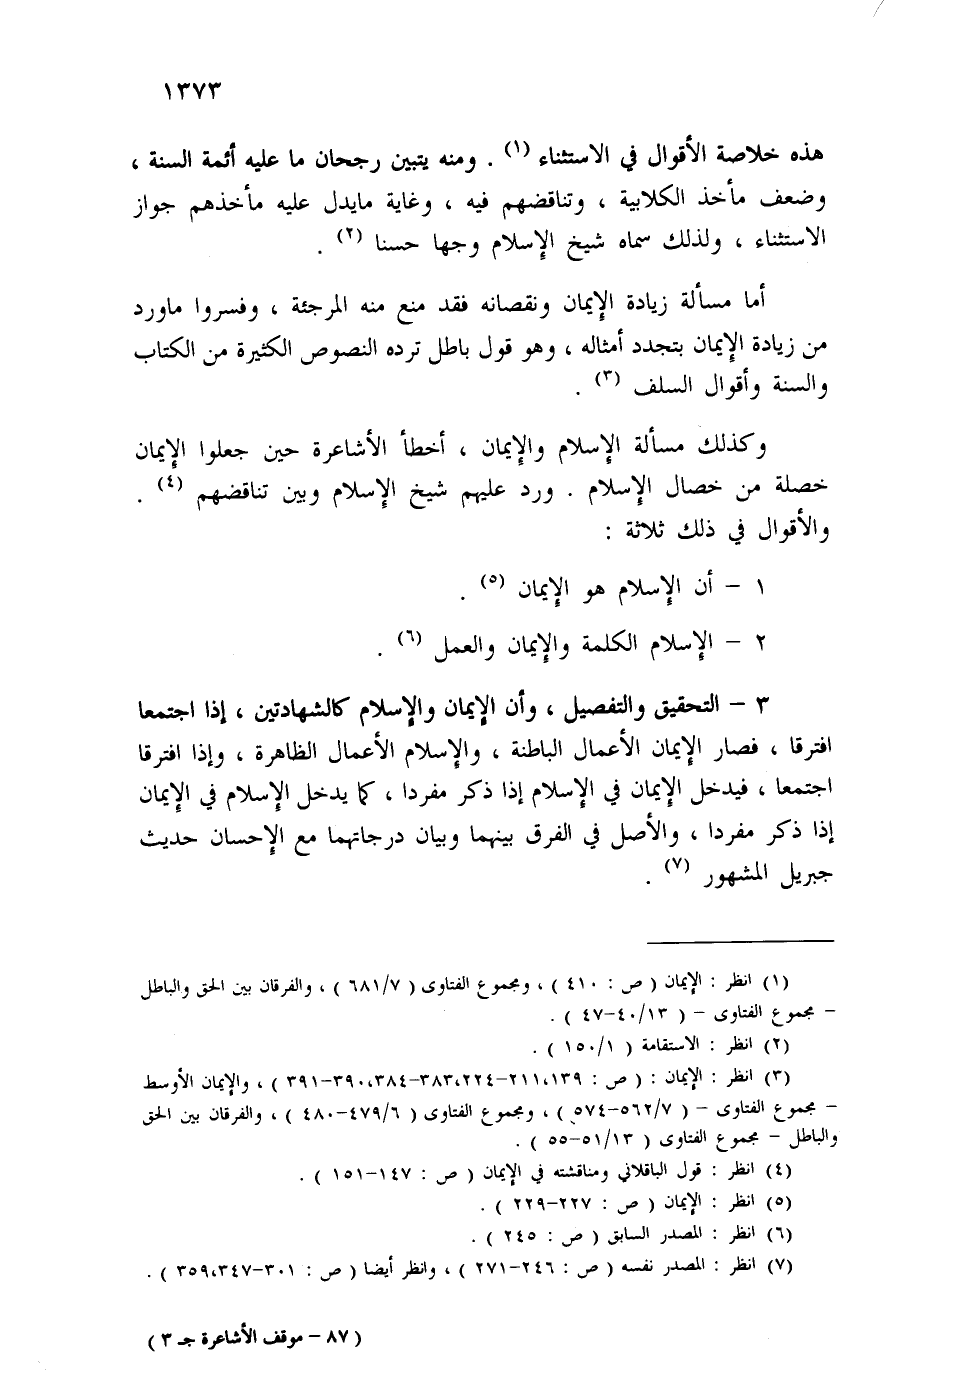 ١٣٧٣
هذه خلاصة الأقوال في الاستثناء (١) . ومنه يتبين رجحان ما عليه أئمة السنة ،
وضعف مأخذ الكلابية ، وتناقضهم فيه ، وغاية مايدل عليه مأخذهم جواز
الاستثناء ، ولذلك سماه شيخ الإسلام وجها حسنا (٢) .
أما مسألة زيادة الإيمان ونقصانه فقد منع منه المرجئة ، وفسروا ماورد
من زيادة الإيمان بتجدد أمثاله ، وهو قول باطل ترده النصوص الكثيرة من الكتاب
والسنة وأقوال السلف (٣) .
وكذلك مسألة الإسلام والإيمان ، أخطأ الأشاعرة حين جعلوا الإيمان
خصلة من خصال الإسلام . ورد عليهم شيخ الإسلام وبين تناقضهم (٤) .
والأقوال في ذلك ثلاثة :
١ – أن الإسلام هو الإيمان (٥) .
٢ – الإسلام الكلمة والإيمان والعمل (٦) .
٣ – التحقيق والتفصيل ، وأن الإيمان والإسلام كالشهادتين ، إذا اجتمعا
افترقا ، فصار الإيمان الأعمال الباطنة ، والإسلام الأعمال الظاهرة ، وإذا افترقا
اجتمعا ، فيدخل الإيمان في الإسلام إذا ذكر مفردا ، كما يدخل الإسلام في الإيمان
إذا ذكر مفردا ، والأصل في الفرق بينهما وبيان درجاتهما مع الإحسان حديث
جبريل المشهور (٧) .
(١) انظر : الإيمان ( ص : ٤١٠ ) ، ومجموع الفتاوى ( ٦٨١/٧ ) ، والفرقان بين الحق والباطل
– مجموع الفتاوى – ( ٤٠/١٣–٤٧ ) .
(٢) انظر : الاستقامة ( ١٥٠/١ ) .
(٣) انظر : الإيمان : ( ص : ٢١١،١٣٩–٣٨٣،٢٢٤–٣٩٠،٣٨٤–٣٩١ ) ، والإيمان الأوسط
– مجموع الفتاوى – ( ٥٦٢/٧–٥٧٤ ) ، ومجموع الفتاوى ( ٤٧٩/٦–٤٨٠ ) ، والفرقان بين الحق
والباطل – مجموع الفتاوى ( ٥١/١٣–٥٥ ) .
(٤) انظر : قول الباقلاني ومناقشته في الإيمان ( ص : ١٤٧–١٥١ ) .
(٥) انظر : الإيمان ( ص : ٢٢٧–٢٢٩ ) .
(٦) انظر : المصدر السابق ( ص : ٢٤٥ ) .
(٧) انظر : المصدر نفسه ( ص : ٢٤٦–٢٧١ ) ، وانظر أيضا ( ص : ٣٠١–٣٥٩،٣٤٧ ) .
( ٨٧ – موقف الأشاعرة جـ ٣ )